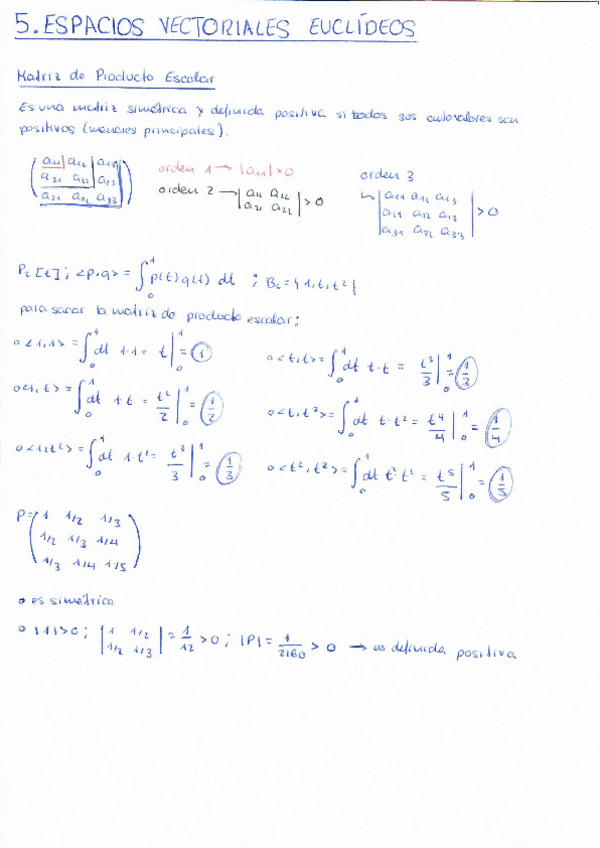 5. ESPACIOS VECTORIALES EUCLÍDEOS
Matriz de Producto Escalar
Es una matriz simétrica y definida positiva si todos sus autovalores son
positivos (menores principales).
(a11 a12 a13
a21 a22 a23
a31 a32 a33)
orden 1 → |a11| > 0
orden 2 → |a11 a12
a21 a22| > 0
orden 3
↳ |a11 a12 a13
a21 a22 a23
a31 a32 a33| > 0
P2[t]; <p·q> = ∫₀¹ p(t) q(t) dt ; Bc = {1, t, t²}
para sacar la matriz de producto escalar:
o <1,1> = ∫₀¹ dt 1·1 = t |₀¹ = 1
o <t,t> = ∫₀¹ dt t·t = t³/3 |₀¹ = 1/3
o <1,t> = ∫₀¹ dt 1·t = t²/2 |₀¹ = 1/2
o <t,t²> = ∫₀¹ dt t·t² = t⁴/4 |₀¹ = 1/4
o <1,t²> = ∫₀¹ dt 1·t² = t³/3 |₀¹ = 1/3
o <t²,t²> = ∫₀¹ dt t²·t² = t⁵/5 |₀¹ = 1/5
P = (1 1/2 1/3
1/2 1/3 1/4
1/3 1/4 1/5)
o es simétrica
o |1| > 0; |1 1/2
1/2 1/3| = 1/12 > 0; |P| = 1/2160 > 0 → es definida positiva